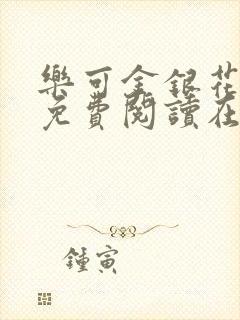 樂可金銀花
免費閱讀在
鍾寅